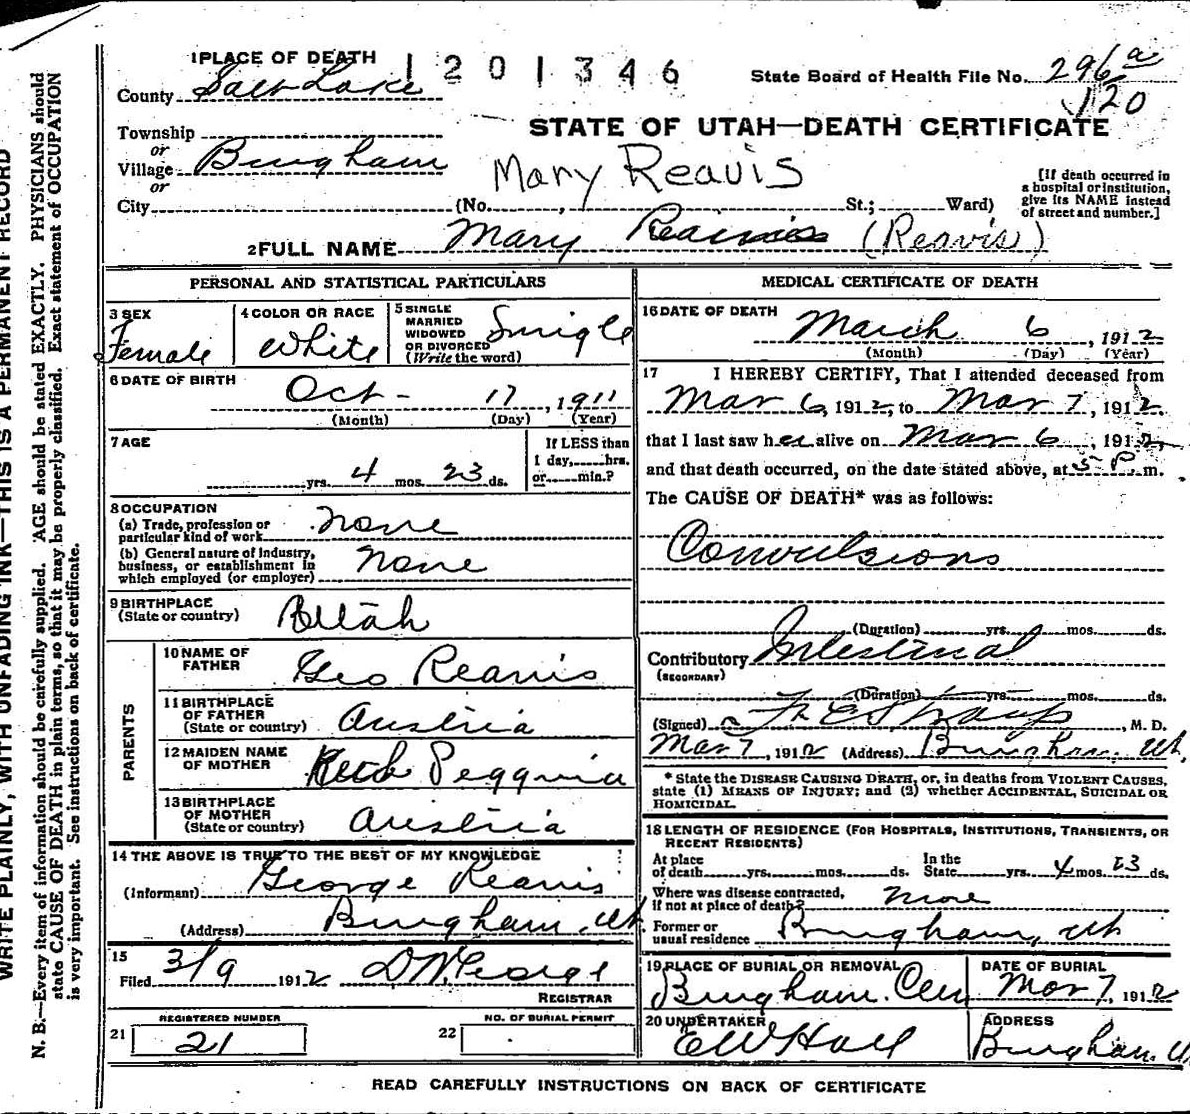 1 PLACE OF DEATH 1201346
State Board of Health File No. 296 a
120
County Salt Lake
STATE OF UTAH—DEATH CERTIFICATE
Township
or
Village Bingham
Mary Reavis
or
City (No. , St.; Ward)
[If death occurred in
a hospital or institution,
give its NAME instead
of street and number.]
2 FULL NAME Mary (Reavis)
PERSONAL AND STATISTICAL PARTICULARS
3 SEX
Female
4 COLOR OR RACE
White
5 SINGLE
MARRIED
WIDOWED
OR DIVORCED
(Write the word)
Single
6 DATE OF BIRTH
Oct - 17, 1911
(Month) (Day) (Year)
7 AGE
yrs. 4 mos. 23 ds.
If LESS than
1 day, hrs.
or min.?
8 OCCUPATION
(a) Trade, profession or
particular kind of work none
(b) General nature of industry,
business, or establishment in
which employed (or employer) none
9 BIRTHPLACE
(State or country) Utah
PARENTS
10 NAME OF
FATHER Geo Reavis
11 BIRTHPLACE
OF FATHER
(State or country) Austria
12 MAIDEN NAME
OF MOTHER
13 BIRTHPLACE
OF MOTHER
(State or country) Austria
14 THE ABOVE IS TRUE TO THE BEST OF MY KNOWLEDGE
(Informant) George Reavis
(Address) Bingham, Ut.
15
Filed 3/9 1912
REGISTRAR
21 REGISTERED NUMBER
21
22 NO. OF BURIAL PERMIT
MEDICAL CERTIFICATE OF DEATH
16 DATE OF DEATH
March 6, 1912
(Month) (Day) (Year)
17 I HEREBY CERTIFY, That I attended deceased from
Mar 6, 1912, to Mar 7, 1912.
that I last saw her alive on Mar 6, 1912,
and that death occurred, on the date stated above, at 5 P. m.
The CAUSE OF DEATH* was as follows:
Convulsions
(Duration) yrs. mos. ds.
Contributory Intestinal
(SECONDARY)
(Duration) yrs. mos. ds.
(Signed) F E Straup, M. D.
Mar 7, 1912 (Address) Bingham, Ut.
* State the DISEASE CAUSING DEATH, or, in deaths from VIOLENT CAUSES,
state (1) MEANS OF INJURY; and (2) whether ACCIDENTAL, SUICIDAL OR
HOMICIDAL.
18 LENGTH OF RESIDENCE (FOR HOSPITALS, INSTITUTIONS, TRANSIENTS, OR
RECENT RESIDENTS)
At place
of death yrs. mos. ds.
In the
State yrs. 4 mos. 23 ds.
Where was disease contracted,
if not at place of death?
Former or
usual residence Bingham, Ut
19 PLACE OF BURIAL OR REMOVAL
Bingham. Cem
DATE OF BURIAL
Mar 7, 1912
20 UNDERTAKER
E W Hall
ADDRESS
Bingham. U
READ CAREFULLY INSTRUCTIONS ON BACK OF CERTIFICATE
WRITE PLAINLY, WITH UNFADING INK—THIS IS A PERMANENT RECORD
N. B.—Every item of information should be carefully supplied. AGE should be stated EXACTLY. PHYSICIANS should
state CAUSE OF DEATH in plain terms, so that it may be properly classified. Exact statement of OCCUPATION
is very important. See instructions on back of certificate.